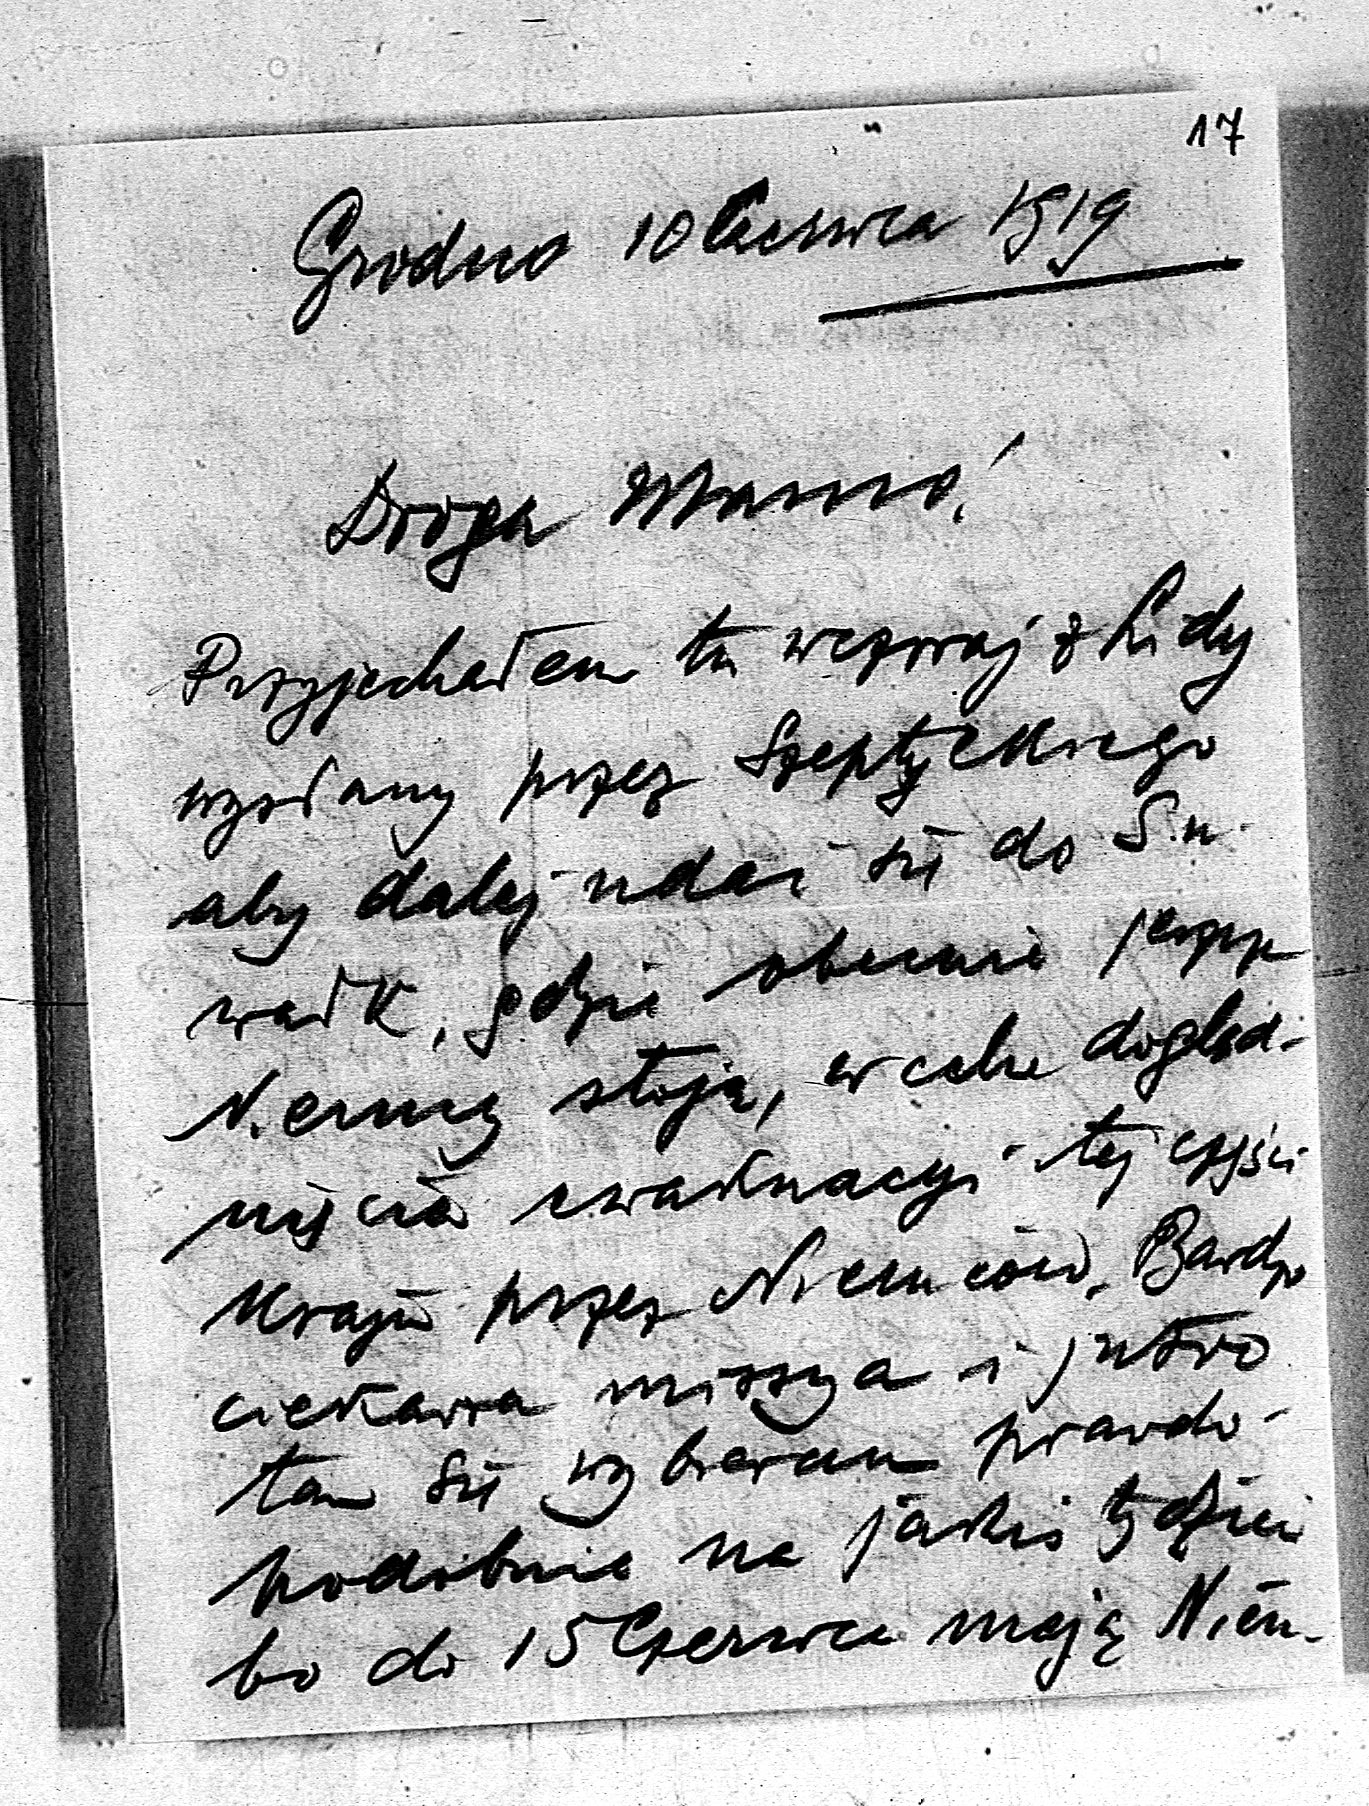 17
Grodno 10 Czerwca 1919
Droga Mamo!
Przyjechałem tu wczoraj z Lidy
wysłany przez Szeptyckiego
aby dalej udać się do Su-
wałk, gdzie obecnie jeszcze
Niemcy stoją, w celu dogląd-
nięcia ewakuacyi tej części
Kraju przez Niemców. Bardzo
ciekawa missya i jutro
tam się wybieram prawdo-
podobnie na jakiś tydzień
bo do 15 Czerwca mają Niem-